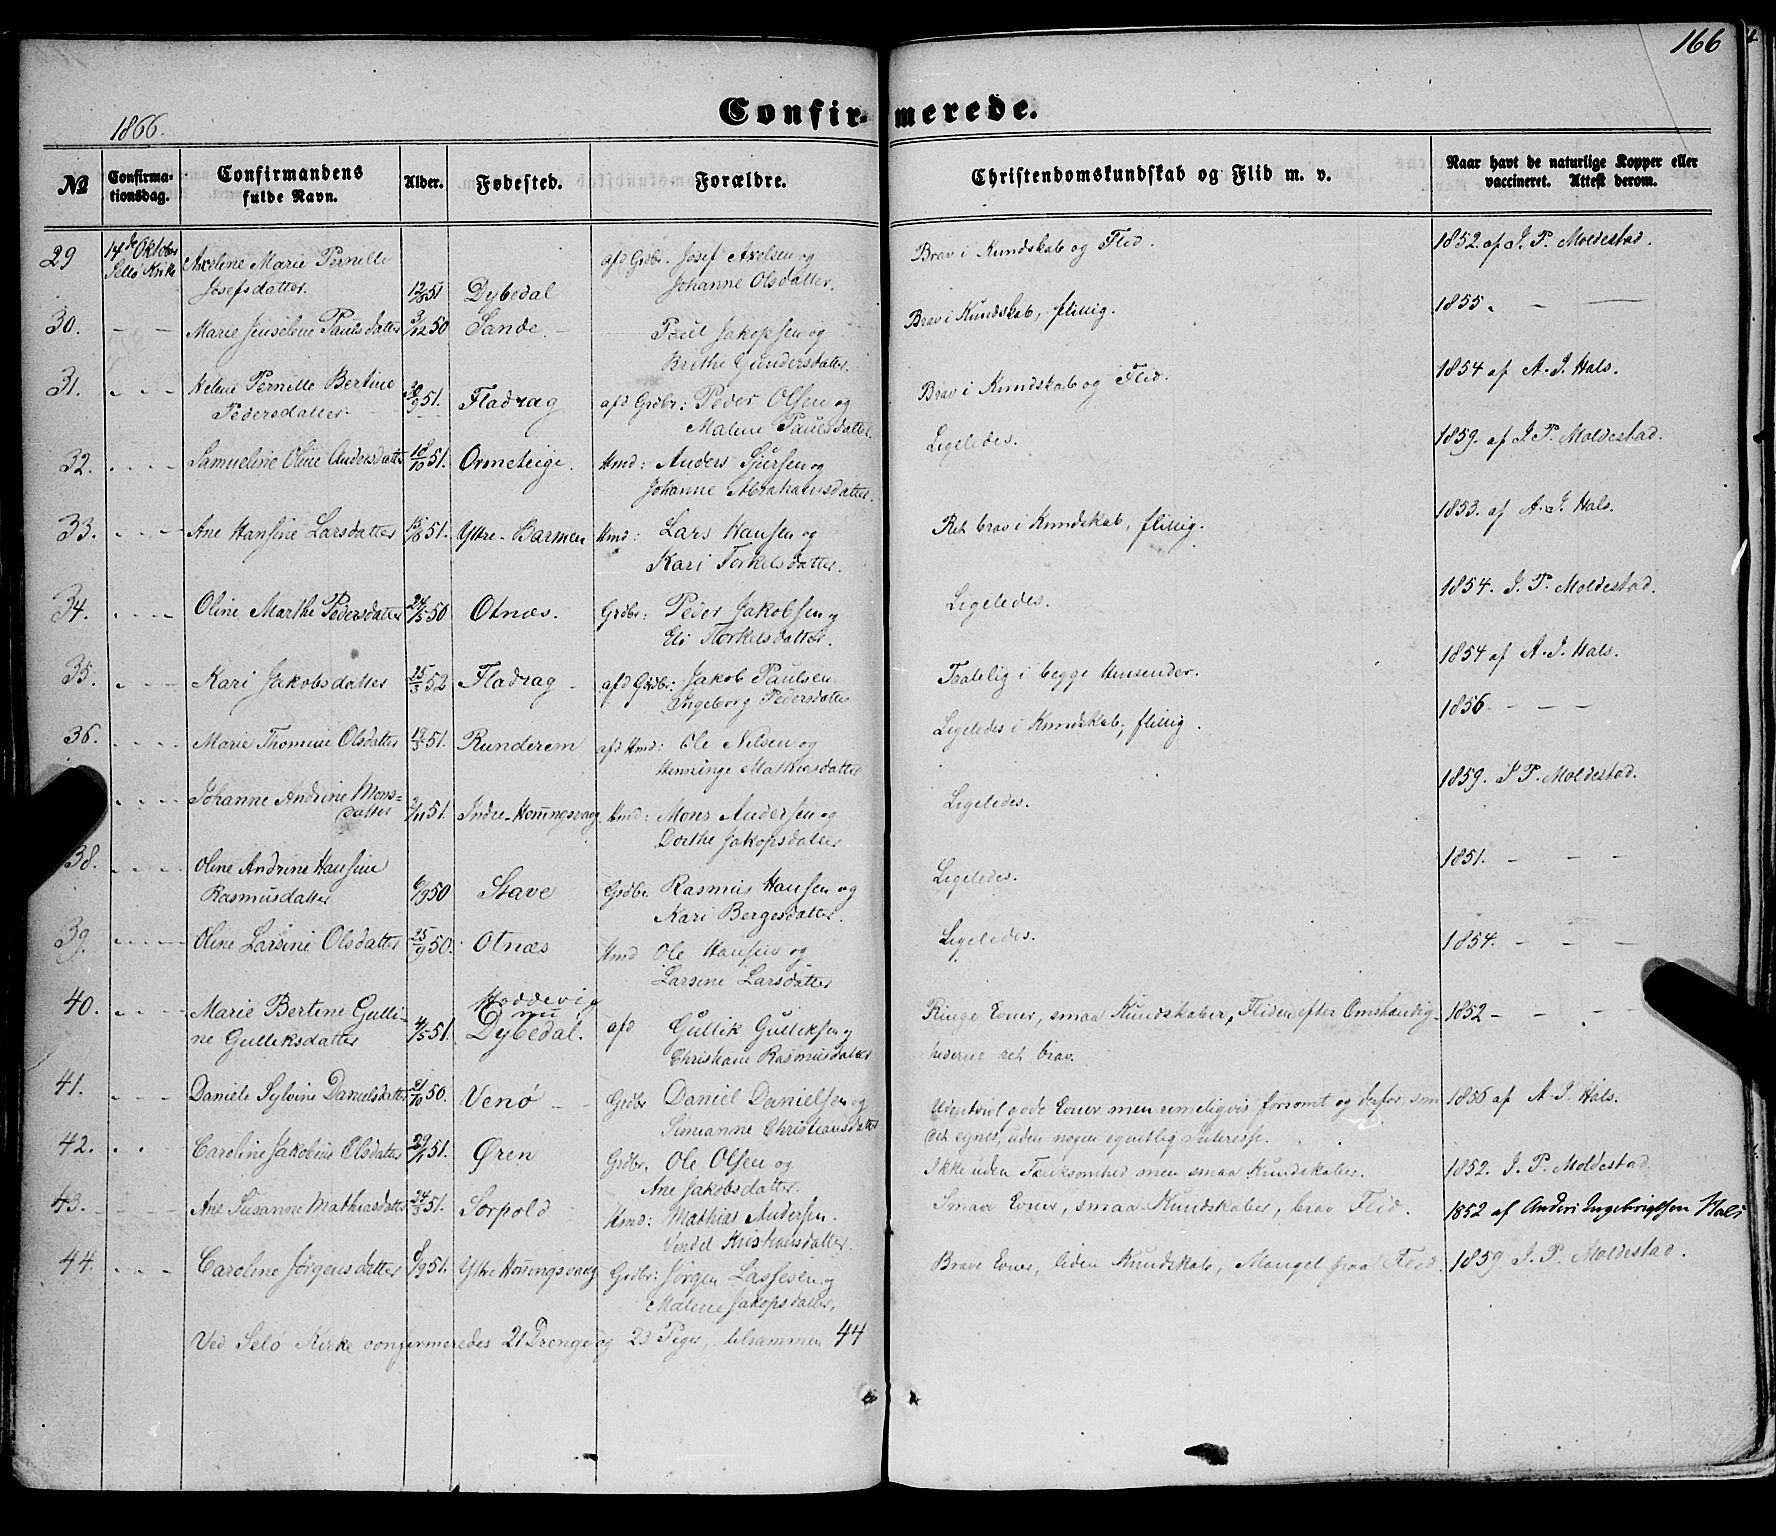 166
1866.
Confirmerede.
№
Confirma-
tionsdag.
Confirmandens
fulde Navn.
Alder.
Fødested.
Forældre.
Christendomskundskab og Flid m. v.
Naar havt de naturlige Kopper eller
vaccineret. Attest derom.
29 14de Oktober Axeline Marie Pernille afd Grdbr. Josef Axelsen og Brav i Kundskab og Flid. 1852 af J. P. Moldestad.
Selø Kirke Josefsdatter. 12/8 51 Dybedal Johanne Olsdatter.
30. - - Marie Jenseline Paulsdatter 3/12 50 Sande - Poul Jakopsen og Brav i Kundskab, flittig. 1855. - -
Brithe Gundersdatter.
31. - - - Helene Pernille Bertine 9 51. Fladrag afd Grdbr: Peder Olsen og Brav i Kundskab og Flid. 1854 af A. I. Hals.
Pedersdatter - Malene Paulsdatter.
32. - - - Samueline Oline Andersdatter 18/10 51. Ormeteige. Hmd: Anders Sjursen og Ligeledes. 1859. af J. P. Moldestad.
Johanne Abrahamsdatter.
33. - - - Ane Hansine Larsdatter 15/8 51. Yttre-Barmen Hmd: Lars Hansen og Ret brav i Kundskab, flittig. 1853. af A. I. Hals.
Kari Torkelsdatter.
34. - - - Oline Marthe Pedersdatter 24/5 50 Otnæs. Grdbr: Peder Jakobsen og Ligeledes. 1854. J. P. Moldestad.
Eli Torkelsdatter.
35. - - - Kari Jakobsdatter 25/3 52 Fladrag - afd Grdbr: Jakob Paulsen Taalelig i begge Henseender. 1854 af A. I. Hals.
Ingeborg Pedersdatter
36. - - - Marie Thomine Olsdatter 19/3 51. Runderem afd Hmd: Ole Nilsen og Ligeledes i Kundskab, flittig. 1856 - - -
Henninge Mathiasdatter
- - - Johanne Andrine Mons- 51. Indre-Honingsvaag Hmd: Mons Andersen og Ligeledes. 1859. J P. Moldestad.
datter Dorthe Jakopsdatter
38. - - - Oline Andrine Hansine Grdbr. Rasmus Hansen og Ligeledes. 1851. - - -
Rasmusdatter 6/9 50 Stave Kari Bergesdatter.
39. - - - Oline Larsine Olsdatter 25/9 50. Otnæs Hmd Ole Hansen og Ligeledes. 1854. - - -
Larsine Larsdatter
40. - - - Marie Bertine Gulli- Hoddevig afd Gullik Gulliksen og Ringe Evner, smaa Kundskaber, Fliden efter Omstændig- 1852 - - -
ne Gulliksdatter 4/5 51. Dybedal. Christiane Rasmusdatter hederne ret brav.
41. - - - Daniele Sylvine Danielsdatter 21/10 50. Venø - Grdbr Daniel Danielsen og Udentvivl gode Evner men rimeligvis forsømt og derfor, som 1856 af A. I. Hals.
Simianne Christiansdatter det synes, uden nogen egentlig Interesse.
42. - - Caroline Jakobine Olsdatter 29/1 51. Øren Grdbr. Ole Olsen og Ikke uden men smaa Kundskaber. 1852. J. P. Moldestad
Ane Jakobsdatter.
43. - - - Ane Susanne Mathiasdatter 24/3 51. Sorpold Hmd: Mathias Andersen. Smaa Evner, smaa Kundskaber, brav Flid. 1852 af Anders Ingebrigtsen Hals
44. - - - Caroline Jørgensdatter 8/9 51. Yttre Honningsvaag Grdbr: Jørgen Lassesen og Brave Evner, liden Kundskab, Mangel paa Flid. 1859 J. P. Moldestad.
Malene Jakopsdatter,
Ved Selø Kirke confirmeredes 21 Drenge og 23 Piger, tilsammen 44